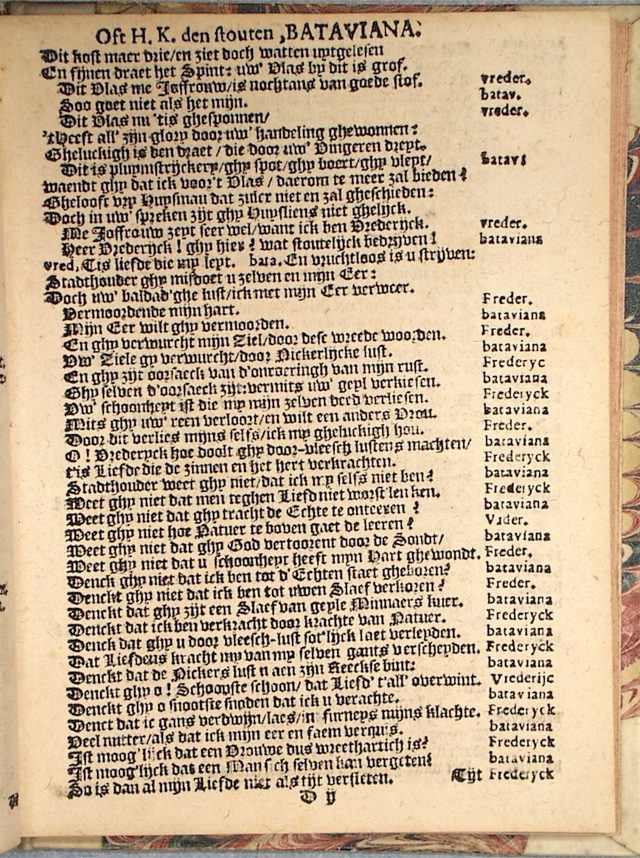 Oft H. K. den stouten, BATAVIANA.
Dit kost maer drie/en ziet doch watten uytgelesen
En fijnen draet het Spint: uw' Vlas by dit is grof.
Dit Vlas me Joffrouw/is nochtans van goede stof. vreder.
Soo goet niet als het mijn. batav.
Dit Vlas nu 'tis ghesponnen/ vreder.
'tHeeft all' zijn glory door uw' handeling ghewonnen:
Gheluckigh is den draet / die door uw' Vingeren dreyt.
Dit is pluymstrijckery/ghy spot/ghy boert/ghy vleyt/ batavi
waendt ghy dat ick voor't Vlas / daerom te meer zal bieden?
Ghelooft vry Huysman dat zulcr niet en zal gheschieden:
Doch in uw' spreken zijt ghy Huysliens niet ghelijck.
Me Joffrouw zeyt seer wel/want ick ben Vrederijck. vreder.
Heer Vrederijck! ghy hier? wat stoutelijck bedrijven! bataviana
vred. Tis liefde die my leyt. bata. En vruchtloos is u strijven:
Stadthouder ghy misdoet u zelven en mijn Eer:
Doch uw' baldad'ghe lust/ick met mijn Eer verweer.
Vermoordende mijn hart. Freder.
Mijn Eer wilt ghy vermoorden. bataviana
En ghy verwurcht mijn Ziel/door dese wreede woorden. Freder.
Uw' Ziele gy verwurcht/door Nickerlijcke lust. bataviana
En ghy zijt oorsaeck van d'onroeringh van mijn rust. Frederyc
Ghy selven d'oorsaeck zijt: vermits uw' geyl verkiesen. bataviana
Uw' schoonheyt ist die my mijn zelven deed verliesen. Frederyck
Mits ghy uw' reen verloort/en wilt een anders Vrou. bataviana
Door dit verlies mijns selfs/ick my gheluckigh hou. Freder.
O! Vrederyck hoe doolt ghy door-vleesch lustens machten/ bataviana
t'is Liefde die de zinnen en het hert verkrachten. Frederyck
Stadthouder weet ghy niet/dat ick my selfs niet ben? bataviana
Weet ghy niet dat men teghen Liefd niet worst'len ken. Frederyck
Weet ghy niet dat ghy tracht de Echte te onteeren? bataviana
Weet ghy niet hoe Natuer te boven gaet de leeren? Vrder.
Weet ghy niet dat ghy God vertoorent door de Sondt/ bataviana
Weet ghy niet dat u schoonheyt heeft mijn Hart ghewondt. Freder.
Denck ghy niet dat ick ben tot d'Echten staet gheboren? bataviana
Denckt ghy niet dat ick ben tot uwen Slaef verkoren? Freder.
Denckt dat ghy zijt een Slaef van geyle Minnaers kuer. bataviana
Denckt dat ick ben verkracht door krachte van Natuer. Frederyck
Denck dat ghy u door vleesch-lust sot'lijck laet verleyden. bataviana
Dat Liefdens kracht my van my selven gants verscheyden. Frederyck
Denckt dat de Nickers lust u aen zijn Keeckse bint: bataviana
Denckt ghy o! Schoonste schoon/ dat Liefd' t'all' overwint. Vrederijc
Denckt ghy o snootste snoden dat ick u verachte. bataviana
Denct dat ic gans verdwijn/laes/in furneys mijns klachte. Frederyck
Veel nutter/als dat ick mijn eer en faem verquis. bataviana
Ist moog'lijck dat een Vrouwe dus wreethartich is? Frederyck
Ist moog'lijck dat een Man sich selven kan vergeten? bataviana
So is dan al mijn Liefde niet als tijt versleten. Frederyck
D ij Tijt